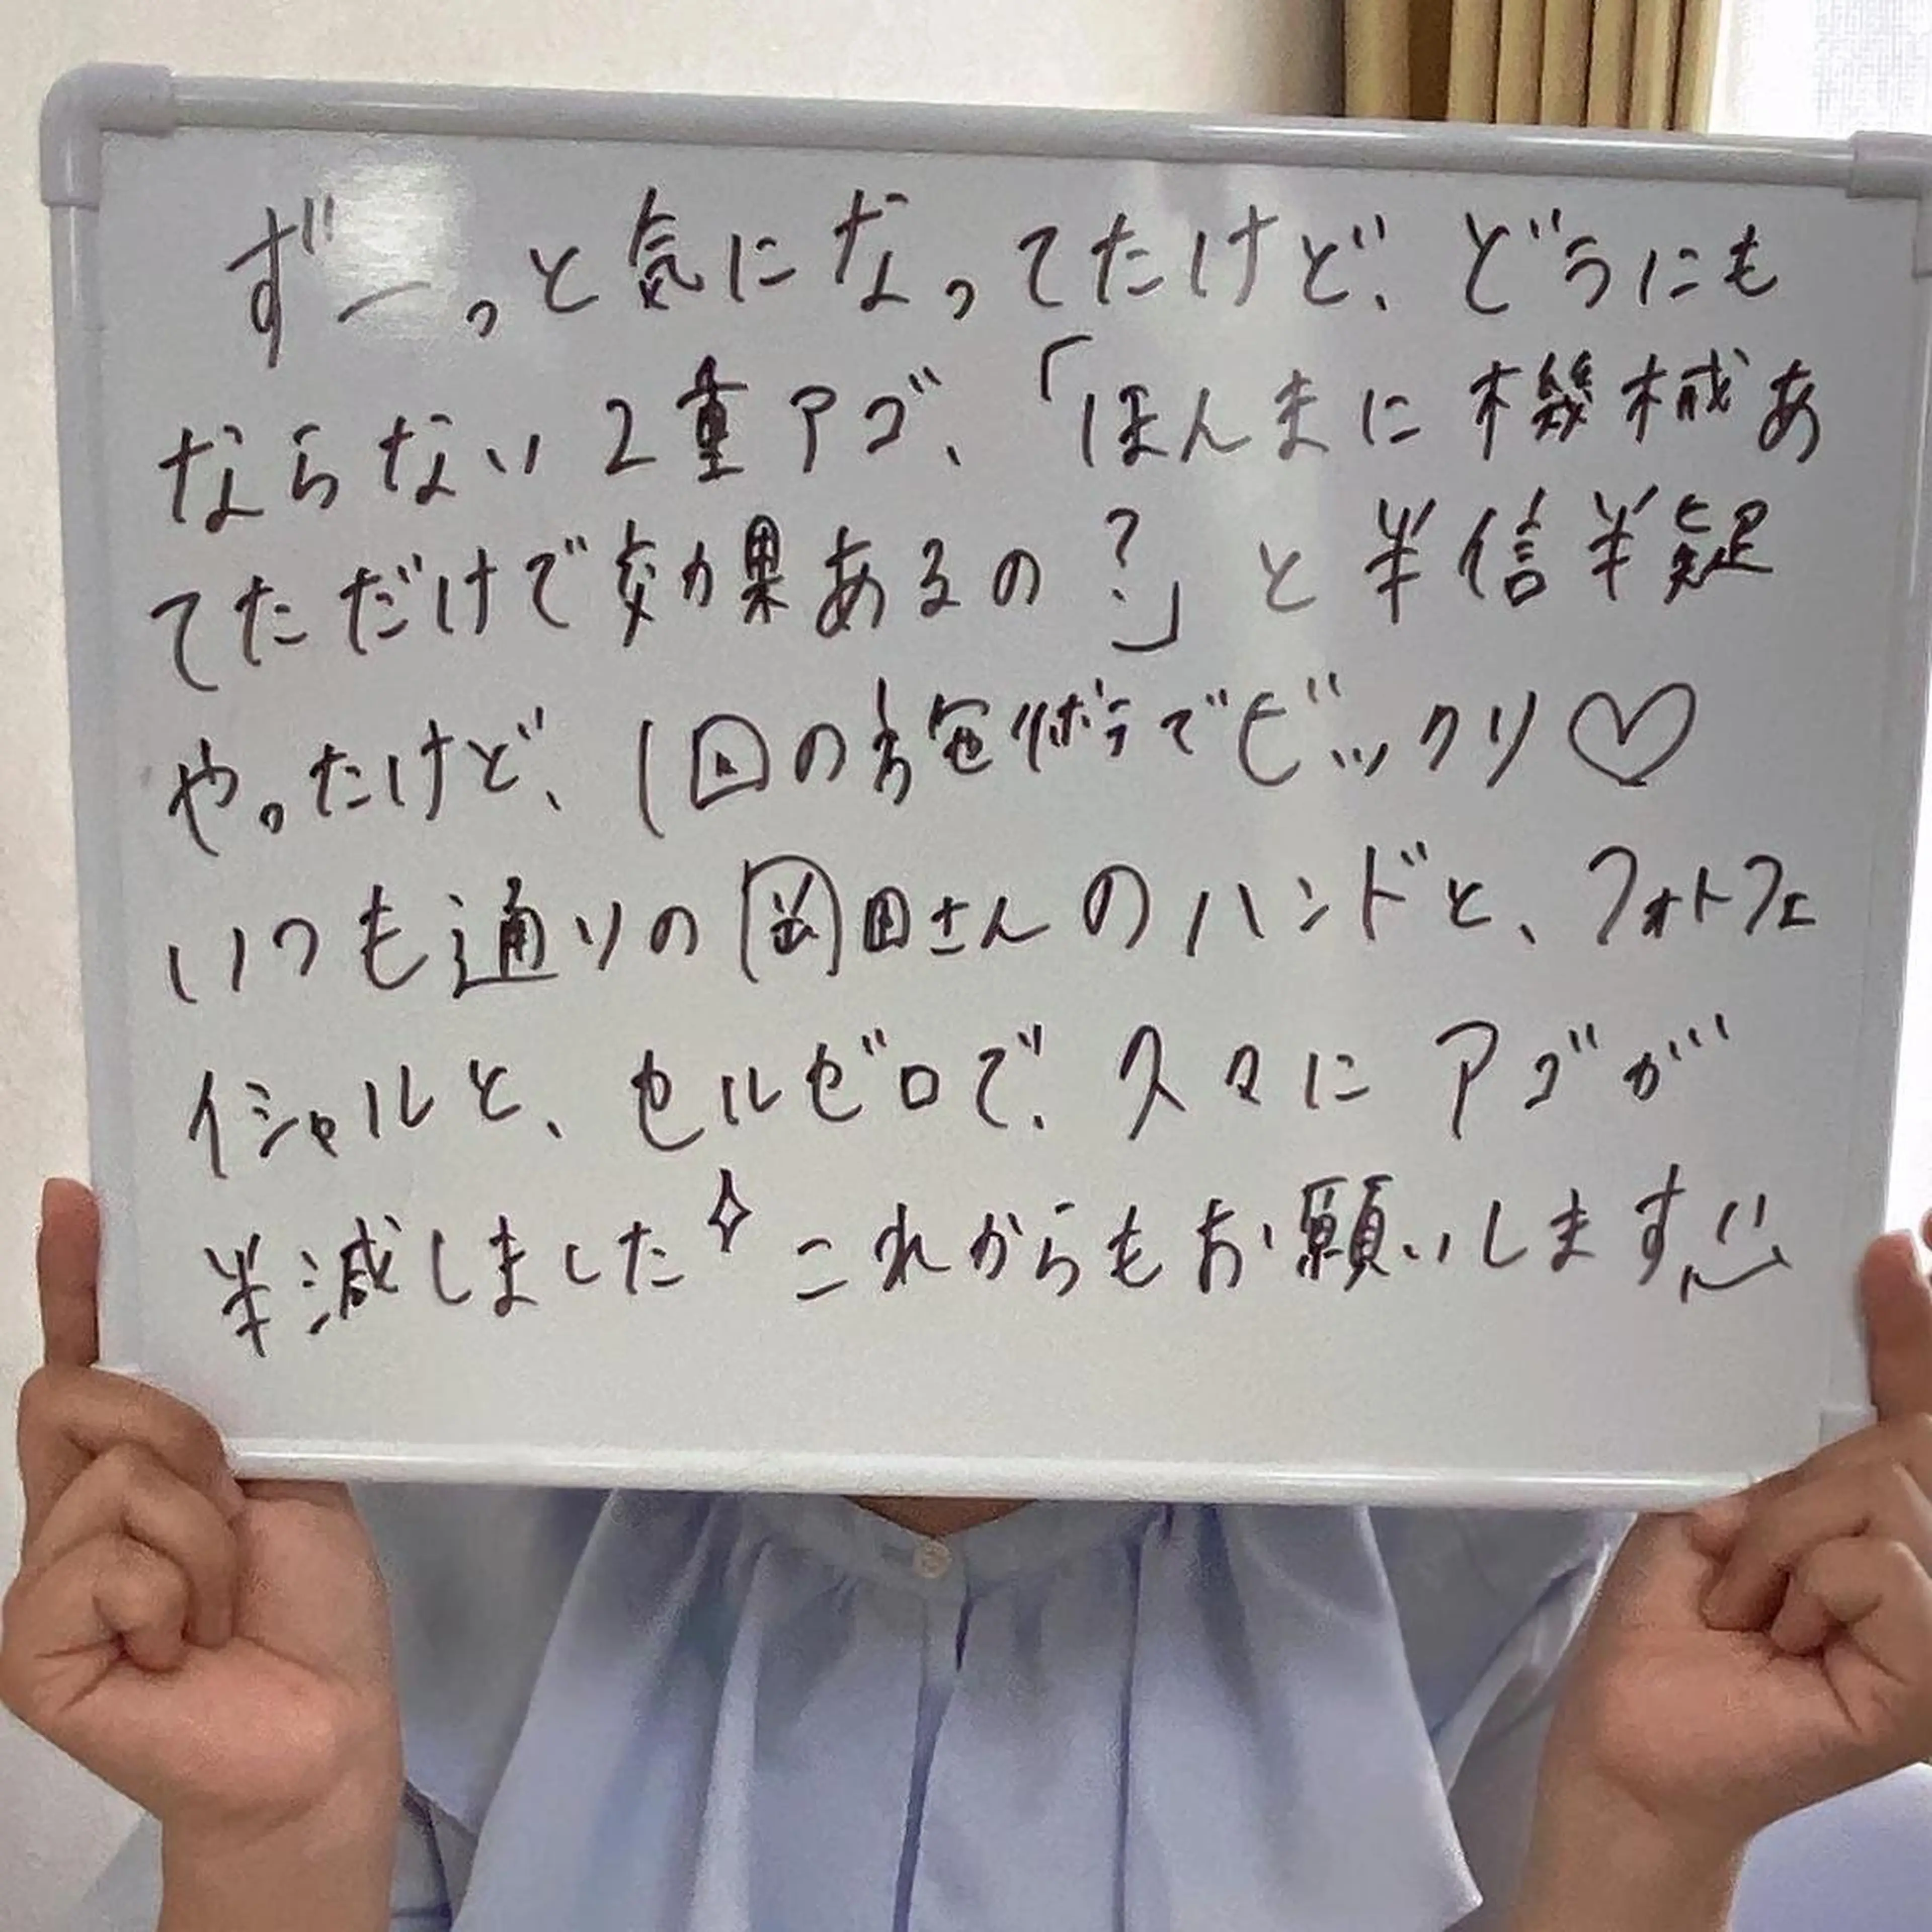 ずーっと気になってたけど、どうにも
ならない2重アゴ、「ほんまに機械あ
てただけで効果あるの?」と半信半疑
やったけど、1回の施術でビックリ♡
いつも通りの岡田さんのハンドと、フォトフェ
イシャルと、セルゼロで、久々にアゴが
半減しました✧これからもお願いします